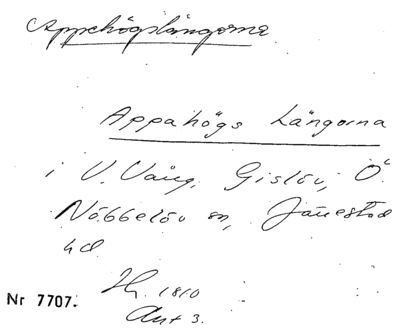 Appahögslängorna
Appahögs Längorna
i V. Vång, Gislöv, Ö.
Nöbbelöv sn, Järrestad
hd
Nr 7707. Hy. 1810
Akt 3.